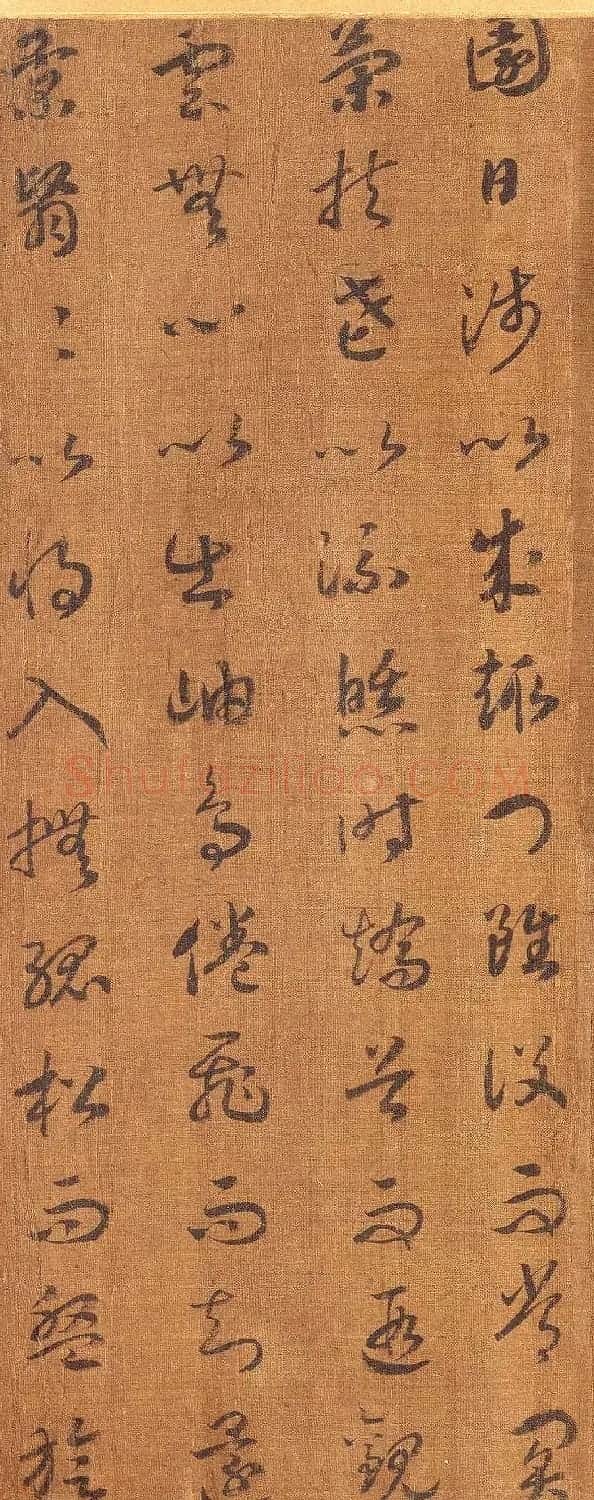 園日涉以成趣門雖設而常關
策扶老以流憩時矯首而遐觀
雲無心以出岫鳥倦飛而知還
景翳〻以將入撫孤松而盤旋
Shufaziliao.COM